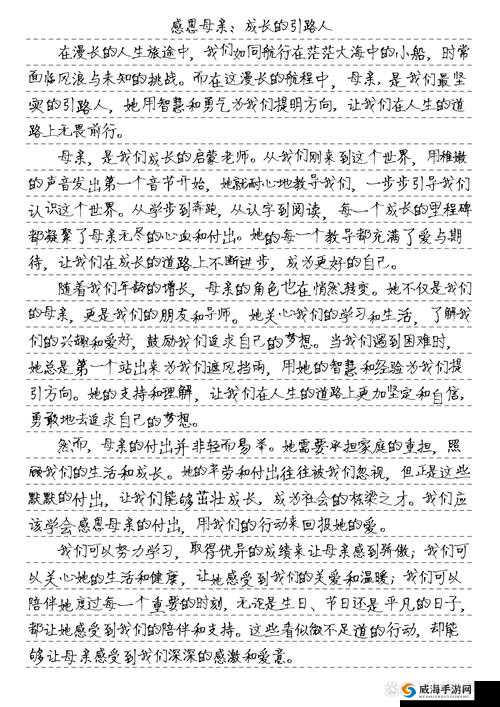 感恩母亲：成长的引路人
在漫长的人生旅途中，我们如同航行在茫茫大海中的小船，时常
面临风浪与未知的挑战。而在这漫长的航程中，母亲，是我们最坚
实的引路人，她用智慧和勇气为我们提明方向，让我们在人生的道
路上无畏前行。
母亲，是我们成长的启蒙老师。从我们刚来到这个世界，用稚嫩
的声音发出第一个音节开始，她就耐心地教导我们，一步步引导我们
认识这个世界。从学步到奔跑，从认字到阅读，每一个成长的里程碑
都凝聚了母亲无尽的心血和付出。她的每一个教导都充满了爱与期
待，让我们在成长的道路上不断进步，成为更好的自己。
随着我们年龄的增长，母亲的角色也在悄然转变。她不仅是我们
的母亲，更是我们的朋友和导师。她关心我们的学习和生活，了解我
们的兴趣和爱好，鼓励我们追求自己的梦想。当我们遇到困难时，
她总是第一个站出来为我们遮风挡雨，用她的智慧和经验为我们提
引方向。她的支持和理解，让我们在人生的道路上更加坚定和自信，
勇敢地去追求自己的梦想。
然而，母亲的付出并非轻而易举。她需要承担家庭的重担，照
顾我们的生活和成长。她的辛劳和付出往往被我们忽视，但正是这些
默默的付出，让我们能够茁壮成长，成为社会的栋梁之才。我们应
该学会感恩母亲的付出，用我们的行动来回报她的爱。
我们可以努力学习，取得优异的成绩来让母亲感到骄傲；我们可
以关心她的生活和健康，让她感受到我们的关爱和温暖；我们可以
陪伴她度过每一个重要的时刻，无论是生日、节日还是平凡的日子，
都让她感受到我们的陪伴和支持。这些看似微不足道的行动，却能
够让母亲感受到我们深深的感激和爱意。
威海手游网